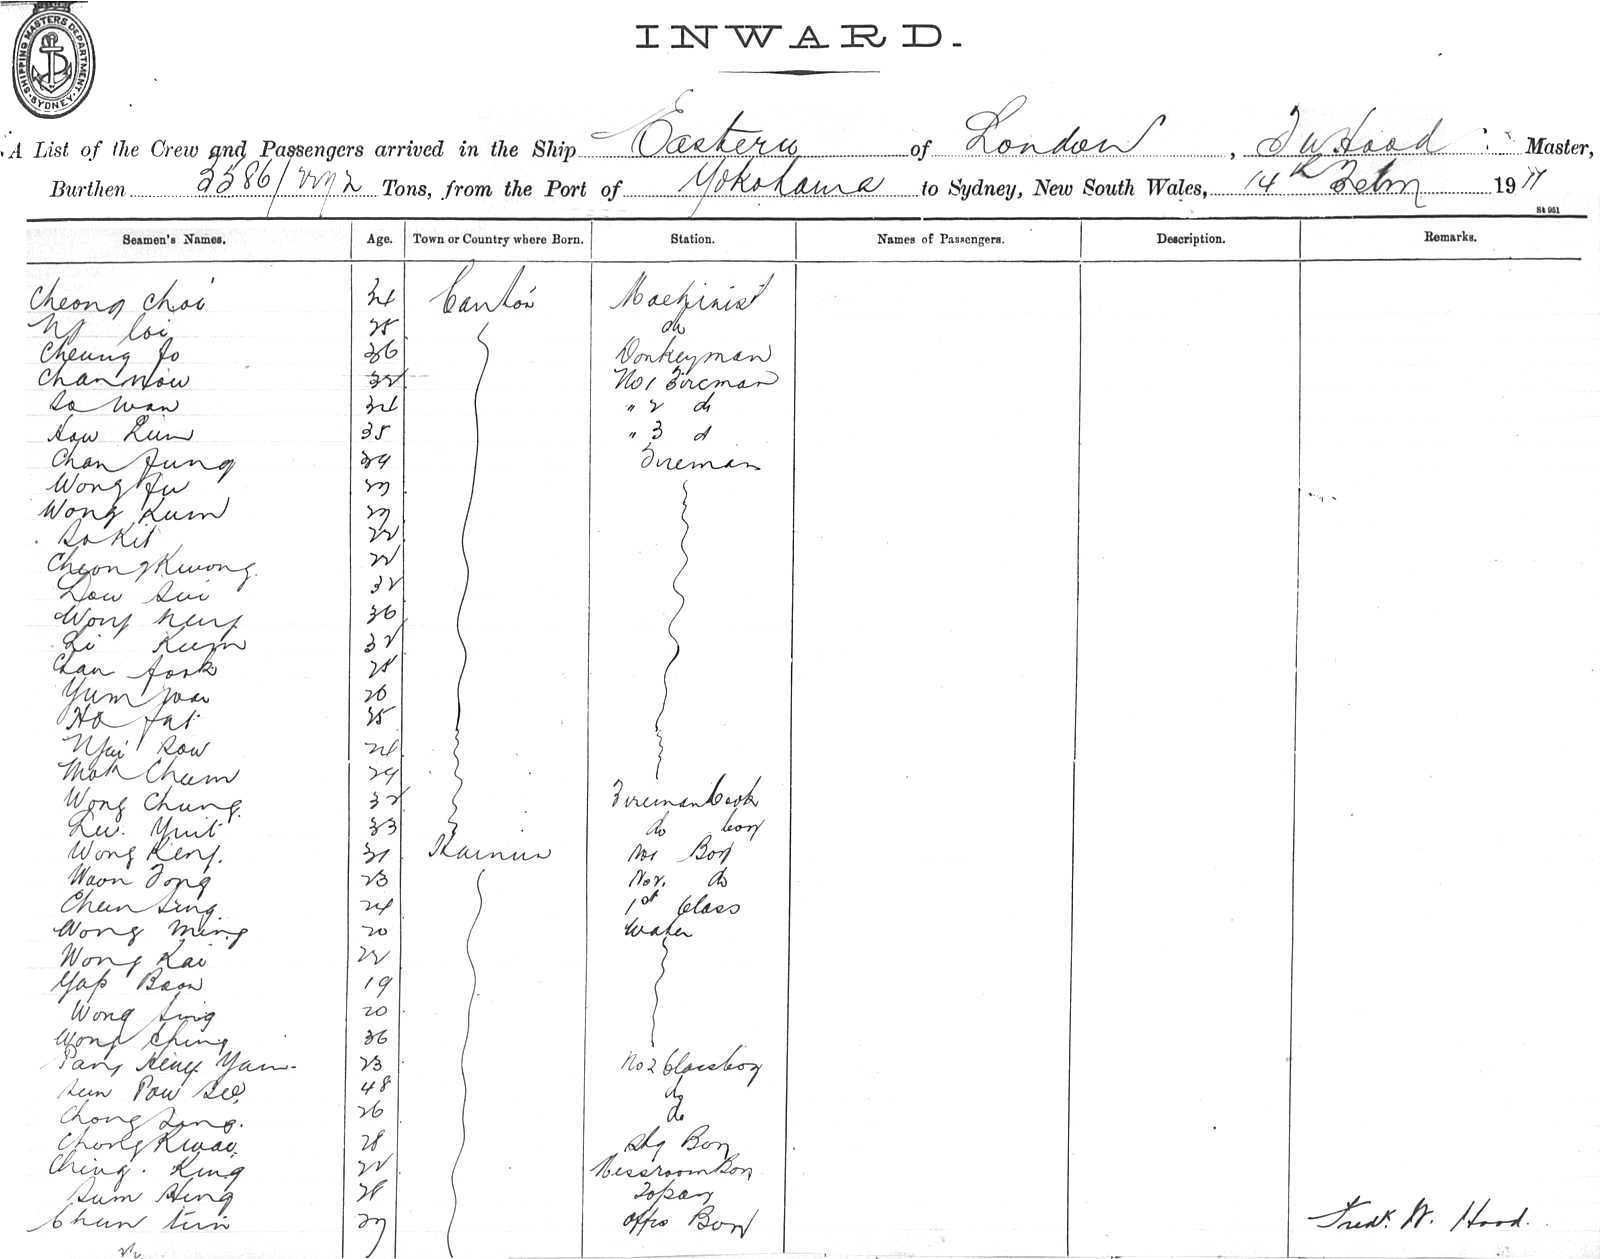 SHIPPING MASTERS DEPARTMENT. SYDNEY.
INWARD.
A List of the Crew and Passengers arrived in the Ship Eastern of London, Master,
Burthen 3586 / Tons, from the Port of Yokohama to Sydney, New South Wales, 14th Febry 1911
St 951
Seamen's Names. Age. Town or Country where Born. Station. Names of Passengers. Description. Remarks.
Cheong Choi 34 Canton Machinist
Ng Loi 28 do
Cheung Fo 36 Donkeyman
Chan 32 No 1 Fireman
So Wan 34 " 2 do
How Kum 35 " 3 d
Chan Fung 29 Fireman
Wong Fu
Wong Kum
So Kit 22
Cheong Kwong 22
Low Sui 32
Wong 36
Li Kum 32
Chan Fook 28
Yum 26
Ho Fat
Ngai Sow 24
Mok Chum 29
Wong Chung 32 Fireman Cook
Lee Yuit 33 do boy
Wong Keng 31 No1 Boy
Waon Tong 23 No2. do
Chun Sing 24 1st Class
Wong Ming 20 Waiter
Wong Kai 22
Yap Boon 19
Wong Sing 20
Wong Ching 36
Pang Yun 23 No 2 Class boy
Sun Pow See 48 do
Chong Sang. 26 do
Chong Kwai 28 Stg Boy
Ching. King 22 Messroom Boy
Sum Hing 28 Topay
Chun Tim 27 Offrs Boy
Fredk. W. Hood.